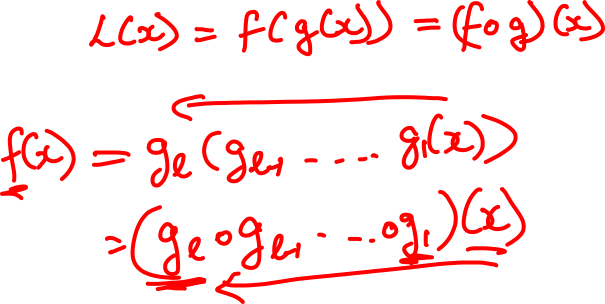 L(x) = f(g(x)) = (f∘g)(x)
f(x) = gₗ(gₗ₋₁ ---... g₁(x))
= (gₗ∘gₗ₋₁ ·...∘g₁)(x)